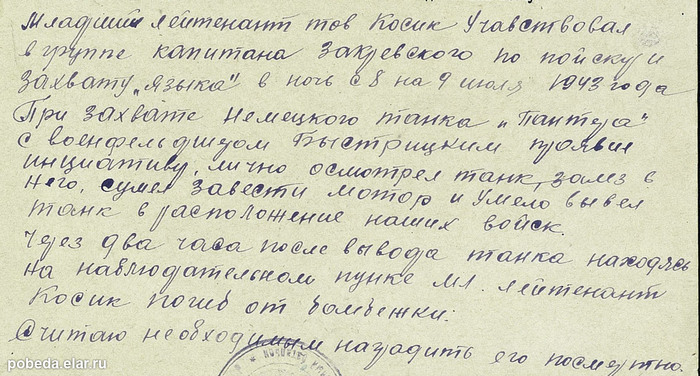 Младший лейтенант тов Косик Учавствовал
в группе капитана Закревского по пойску и
захвату „языка" в ночь с 8 на 9 июля 1943 года
При захвате немецкого танка „Пантера"
с военфельдшером Быстрицким проявил
инициативу, лично осмотрел танк, залез в
него, сумел завести мотор и умело вывел
танк в расположение наших войск.
Через два часа после вывода танка находясь
на наблюдательном пунке мл. лейтенант
Косик погиб от бомбежки.
Считаю необходимым наградить его посмертно.
pobeda.elar.ru